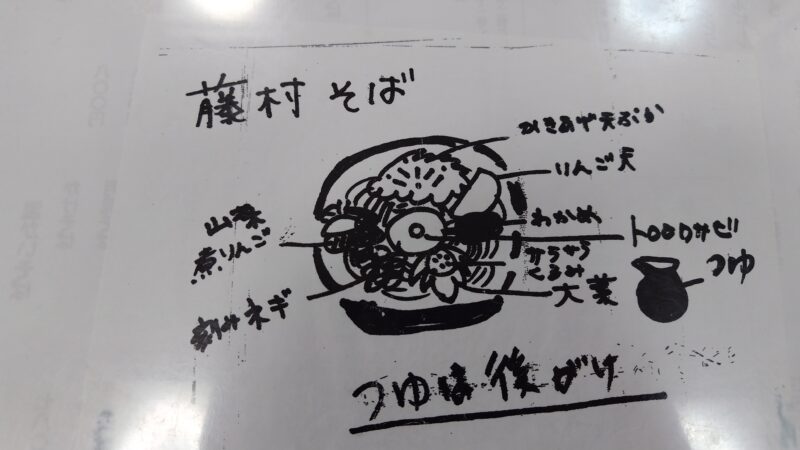 藤村そば
かきあげ天ぷら
りんご天
わかめ
トロロワサビ
つゆ
からから
くるみ
大葉
山菜
煮りんご
刻みネギ
つゆは後がけ